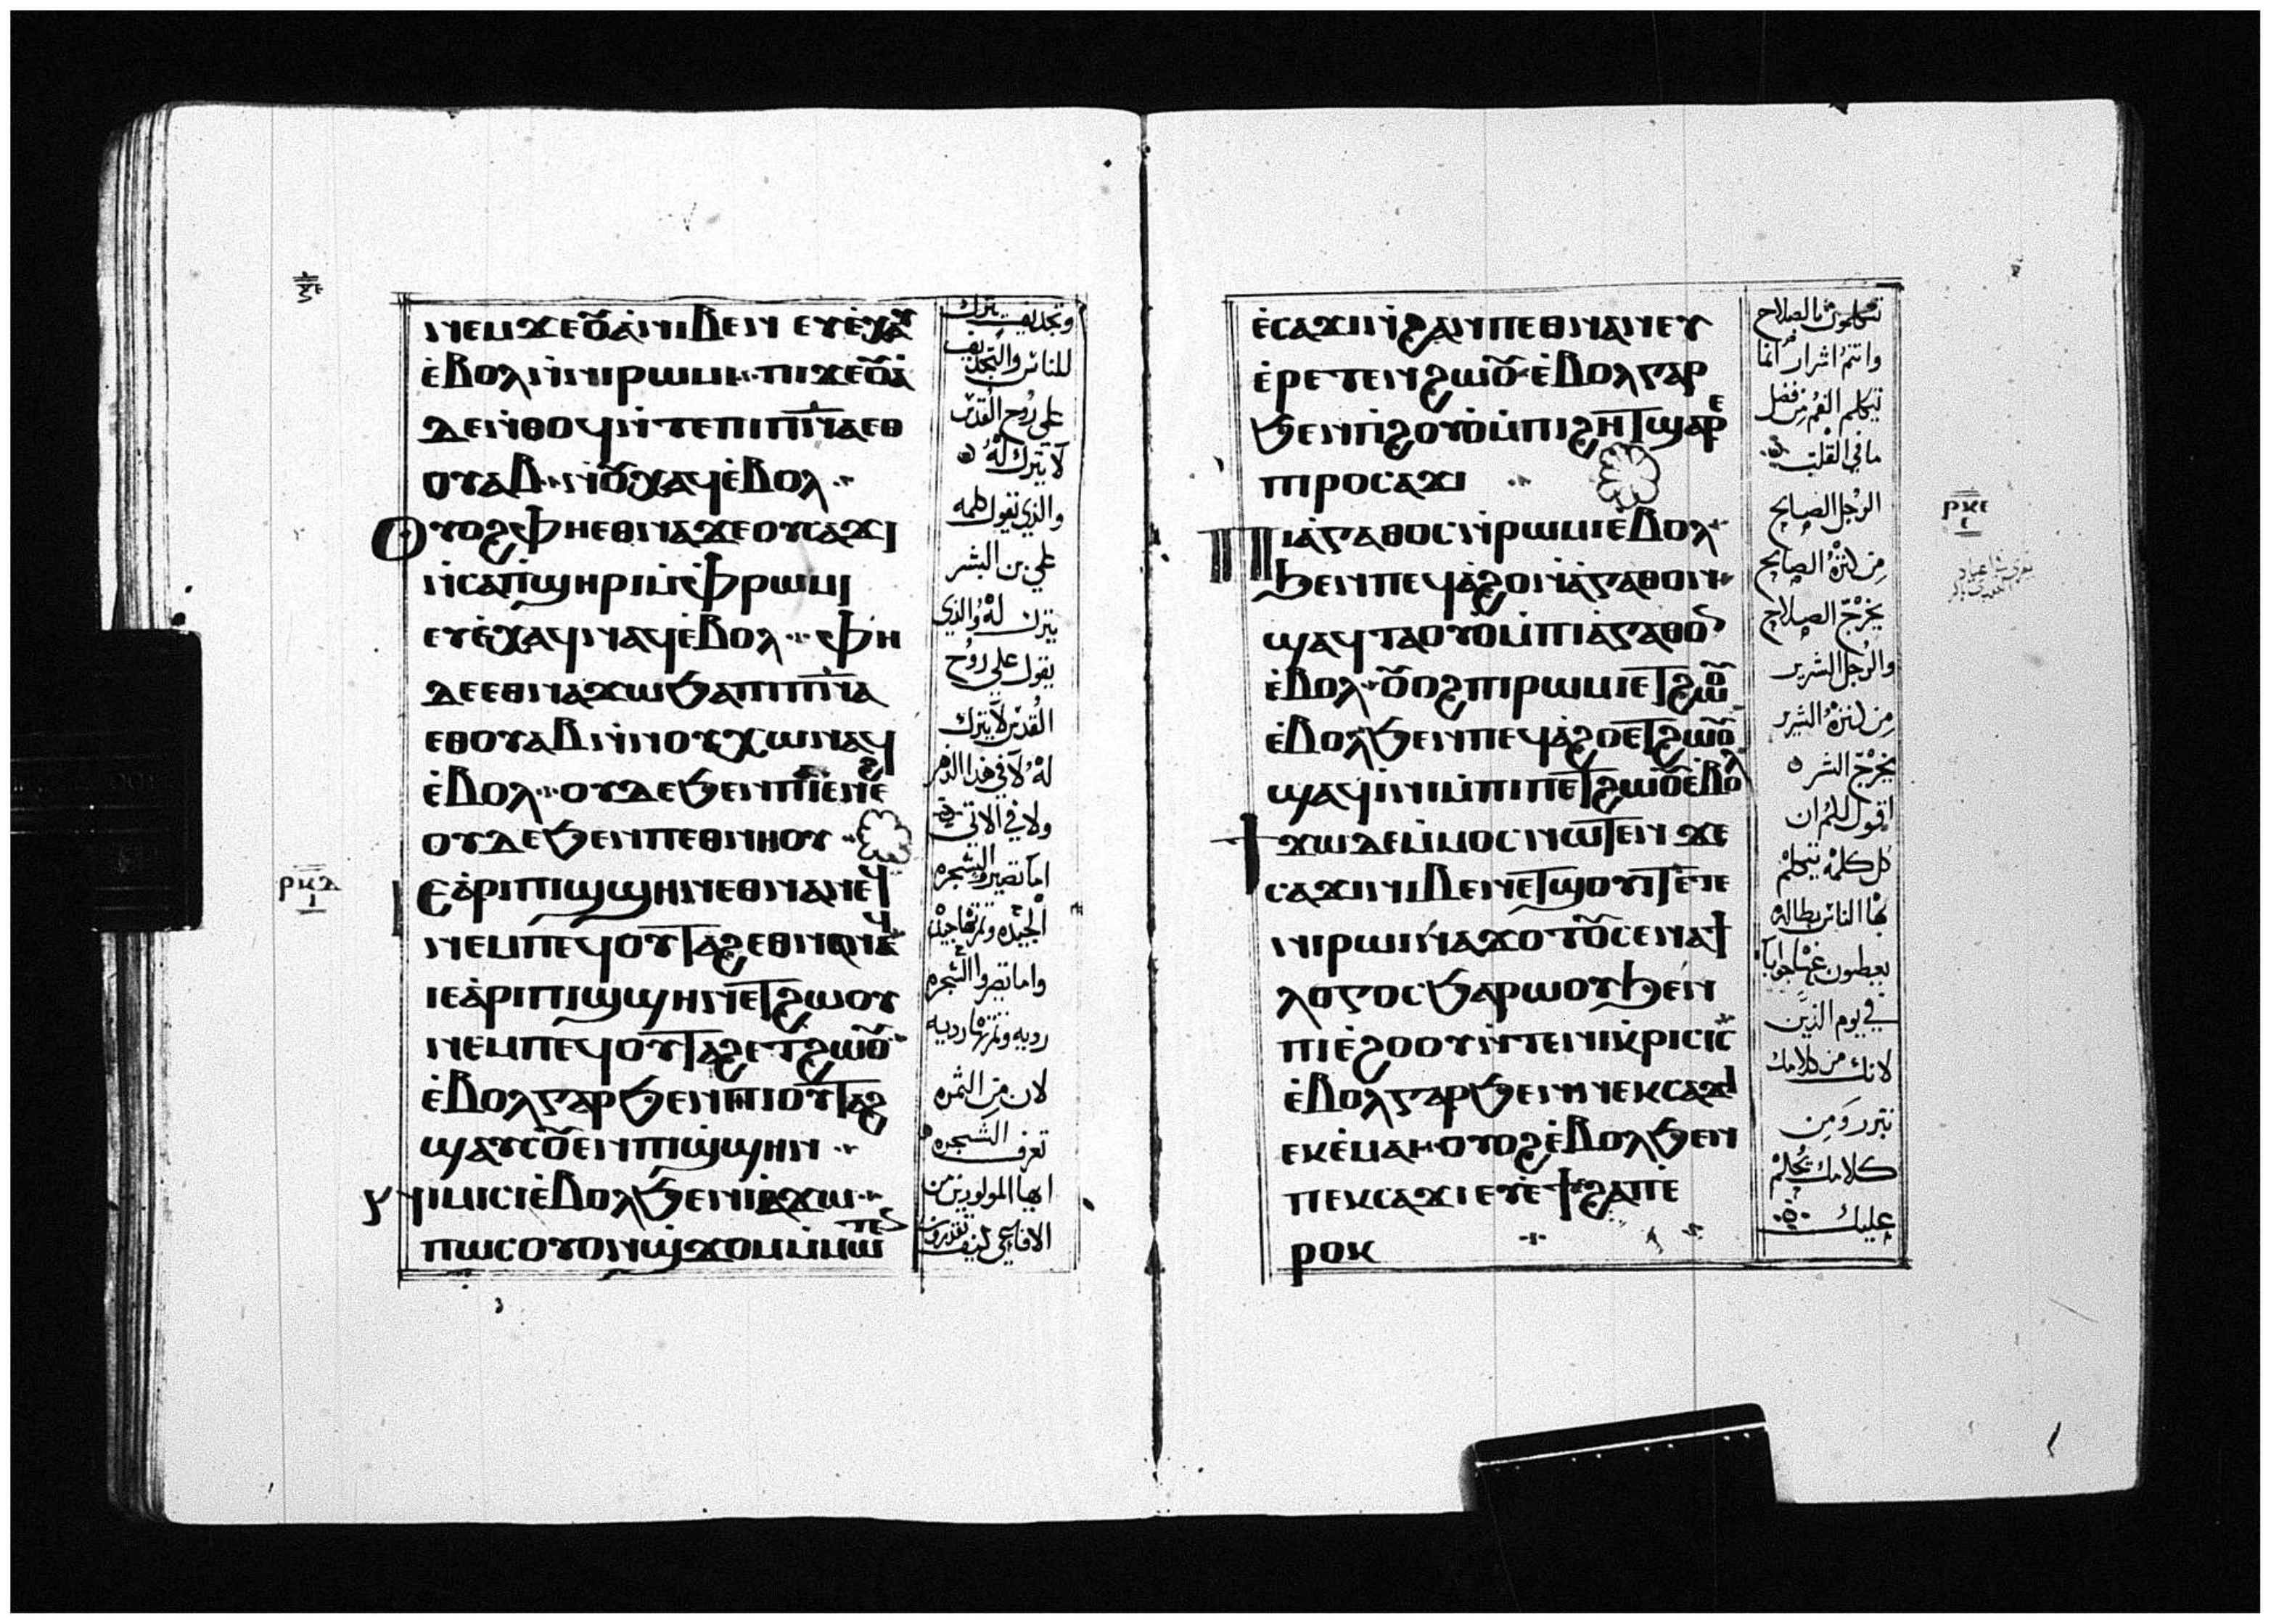 ⲛⲉⲙϫⲉⲟⲩ̀ⲁⲛⲓⲃⲉⲛ ⲉⲩⲉ̀ⲭⲁⲩ
ⲉ̀ⲃⲟⲗⲛ̀ⲛⲓⲣⲱⲙⲓ ⲡⲓϫⲉⲟⲩ̀ⲁ
ⲇⲉⲛ̀ⲑⲟϥⲛ̀ⲧⲉⲡⲓⲡ̅ⲛ̅ⲁⲉⲑ
ⲟⲩⲁⲃ ⲛ̀ⲟⲩⲭⲁϥⲉ̀ⲃⲟⲗ
ⲟⲩⲟϩⲫⲏⲉⲑⲛⲁϫⲉⲟⲩⲥⲁϫⲓ
ⲛ̀ⲥⲁⲡ̀ϣⲏⲣⲓⲙ̀ⲫ̀ⲣⲱⲙⲓ
ⲉⲩⲉ̀ⲭⲁϥⲛⲁϥⲉ̀ⲃⲟⲗ ⲫⲏ
ⲇⲉⲉⲑⲛⲁϫⲱϧⲁⲡⲓⲡ̅ⲛ̅ⲁ
ⲉⲑⲟⲩⲁⲃⲛ̀ⲛⲟⲩⲭⲱⲛⲁϥ
ⲉ̀ⲃⲟⲗ ⲟⲩⲇⲉϧⲉⲛⲡⲁⲓⲉ̀ⲛⲉϩ
ⲟⲩⲇⲉϧⲉⲛⲡⲉⲑⲛⲏⲟⲩ
ⲓⲉⲁ̀ⲣⲓⲡⲓϣϣⲏⲛⲉⲑⲛⲁⲛⲉϥ
ⲛⲉⲙⲡⲉϥⲟⲩⲧⲁϩⲉⲑⲛⲁⲛⲉϥ
ⲓⲉⲁ̀ⲣⲓⲡⲓϣϣⲏⲛⲉⲧϩⲱⲟⲩ
ⲛⲉⲙⲡⲉϥⲟⲩⲧⲁϩⲉⲧϩⲱⲟⲩ
ⲉ̀ⲃⲟⲗⲅⲁⲣϧⲉⲛⲡⲓⲟⲩⲧⲁϩ
ϣⲁⲩⲥⲟⲩⲉⲛⲡⲓϣ̀ϣⲏⲛ
ⲛⲓⲙⲓⲥⲓⲉ̀ⲃⲟⲗϧⲉⲛⲛⲓⲁϫⲱ
ⲡⲱⲥⲟⲩⲟⲛϣ̀ϫⲟⲙⲙ̀ⲙⲱⲧⲉⲛ
وتجديف يترك
للناس والتجديف
علي روح القدس
لا يترك له
والذي تقول كلمه
علي بن البشر
يترك له والذي
يقول علي روح
القدس لا يترك
له لا في هذا الدهر
ولا في الاتي
اما تصيروا الشجره
الجيده وثمرتها جيده
واما تصيروا الشجره
رديه وثمرتها رديه
لان من الثمره
تعرف الشجره
ايها المولودين من
الافاعي كيف تقدرون
ⲣⲕⲇ
ⲉ̀ⲥⲁϫⲓⲛ̀ϩⲁⲛⲡⲉⲑⲛⲁⲛⲉⲩ
ⲉ̀ⲣⲉⲧⲉⲛϩⲱⲟⲩ ⲉ̀ⲃⲟⲗⲅⲁⲣ
ϧⲉⲛⲡ̀ϩⲟⲩⲟ̀ⲙ̀ⲡⲓϩⲏⲧϣⲁⲣⲉ
ⲡⲓⲣⲟⲥⲁϫⲓ
ⲡⲓⲁ̀ⲅⲁⲑⲟⲥⲛ̀ⲣⲱⲙⲓⲉ̀ⲃⲟⲗ
ϧⲉⲛⲡⲉϥⲁ̀ϩⲟⲛ̀ⲁ̀ⲅⲁⲑⲟⲛ
ϣⲁϥⲧⲁⲟⲩⲟ̀ⲙ̀ⲡⲓⲁ̀ⲅⲁⲑⲟⲛ
ⲉ̀ⲃⲟⲗ ⲟⲩⲟϩⲡⲓⲣⲱⲙⲓⲉⲧϩⲱⲟⲩ
ⲉ̀ⲃⲟⲗϧⲉⲛⲡⲉϥⲁ̀ϩⲟⲉⲧϩⲱⲟⲩ
ϣⲁϥⲓ̀ⲛⲓⲙ̀ⲡⲓⲡⲉⲧϩⲱⲟⲩⲉ̀ⲃⲟⲗ
ϯϫⲱⲇⲉⲙ̀ⲙⲟⲥⲛⲱⲧⲉⲛ ϫⲉ
ⲥⲁϫⲓⲛⲓⲃⲉⲛⲉⲧϣⲟⲩⲓⲧⲉ̀ⲧⲉ
ⲛⲓⲣⲱⲙⲓⲛⲁϫⲟⲧⲟⲩⲥⲉⲛⲁϯ
ⲗⲟⲅⲟⲥϧⲁⲣⲱⲟⲩϧⲉⲛ
ⲡⲓⲉ̀ϩⲟⲟⲩⲛ̀ⲧⲉⲛⲓⲕ̀ⲣⲓⲥⲓⲥ
ⲉ̀ⲃⲟⲗⲅⲁⲣϧⲉⲛⲛⲉⲕⲥⲁϫⲓ
ⲉⲕⲉ̀ⲙⲁⲓ ⲟⲩⲟϩⲉ̀ⲃⲟⲗϧⲉⲛ
ⲡⲉⲕⲥⲁϫⲓ ⲉⲩⲉ̀ϯϩⲁⲡⲉ̀
ⲣⲟⲕ
تتكلمون بالصلاح
وانتم اشرار انما
يتكلم الفم من فضل
ما في القلب
الرجل الصالح
من كنزه الصالح
يخرج الصلاح
والرجل الشرير
من كنزه الشرير
يخرج الشر
اقول لكم ان
كل كلمه يتكلم
بها الناس بطاله
يعطون عنها جوابا
في يوم الدين
لانك من كلامك
تتبرر ومن
كلامك يحكم
عليك
ⲣⲕⲉ